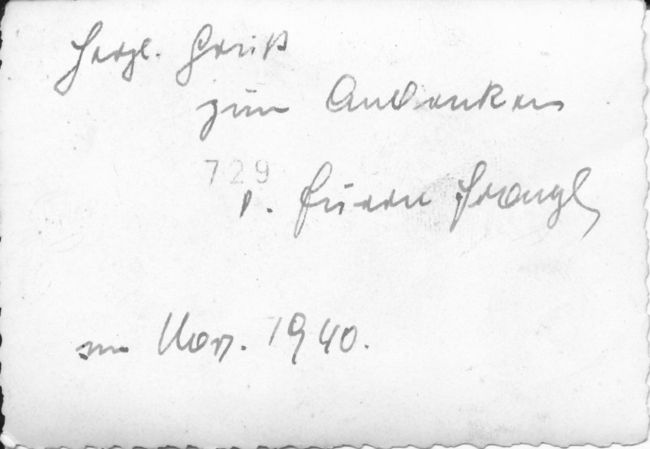 Herzl. Gruß
zum Andenken
729
v. Euern Franzl,
im Nov. 1940.